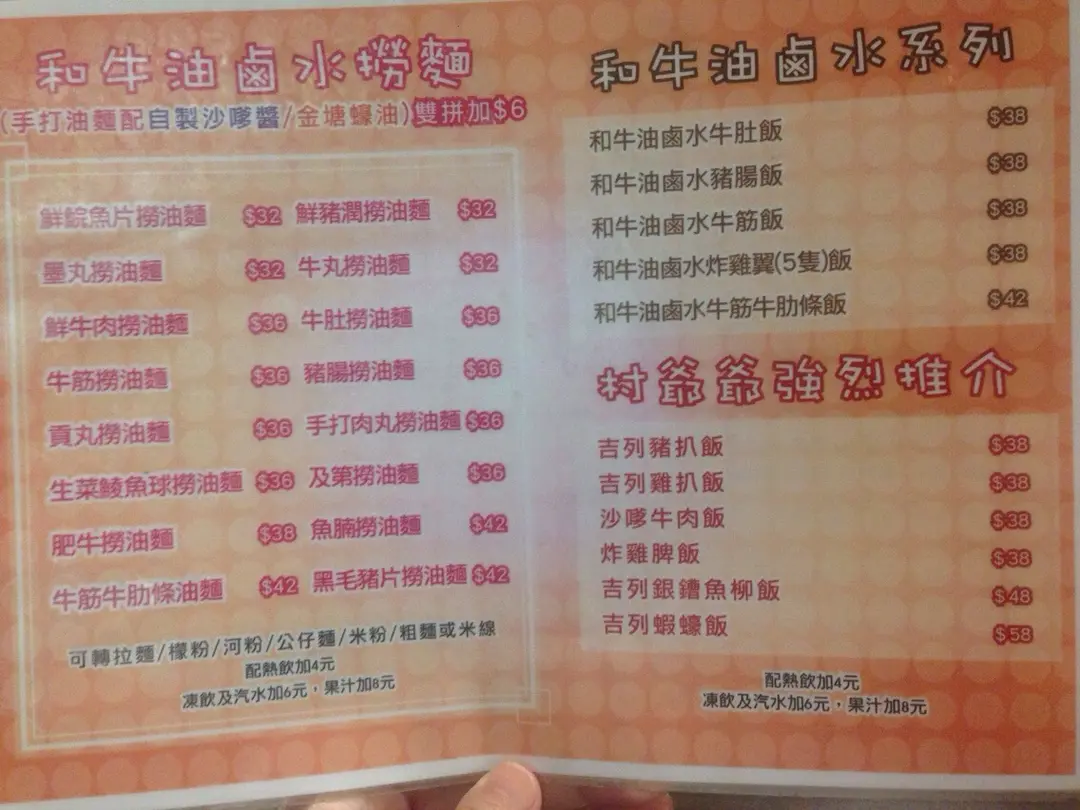 和牛油鹵水撈麵
(手打油麵配自製沙嗲醬/金塘蠔油)雙拼加$6
鮮鯇魚片撈油麵 $32 鮮豬潤撈油麵 $32
墨丸撈油麵 $32 牛丸撈油麵 $32
鮮牛肉撈油麵 $36 牛肚撈油麵 $36
牛筋撈油麵 $36 豬腸撈油麵 $36
貢丸撈油麵 $36 手打肉丸撈油麵 $36
生菜鯪魚球撈油麵 $36 及第撈油麵 $36
肥牛撈油麵 $38 魚腩撈油麵 $42
牛筋牛肋條油麵 $42 黑毛豬片撈油麵 $42
可轉拉麵/檬粉/河粉/公仔麵/米粉/粗麵或米線
配熱飲加4元
凍飲及汽水加6元，果汁加8元
和牛油鹵水系列
和牛油鹵水牛肚飯 $38
和牛油鹵水豬腸飯 $38
和牛油鹵水牛筋飯 $38
和牛油鹵水炸雞翼(5隻)飯 $38
和牛油鹵水牛筋牛肋條飯 $42
村爺爺強烈推介
吉列豬扒飯 $38
吉列雞扒飯 $38
沙嗲牛肉飯 $38
炸雞脾飯 $38
吉列銀鱈魚柳飯 $48
吉列蝦蠔飯 $58
配熱飲加4元
凍飲及汽水加6元，果汁加8元